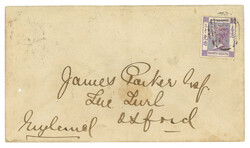 James Parker Esq.
The Turl
Oxford
England